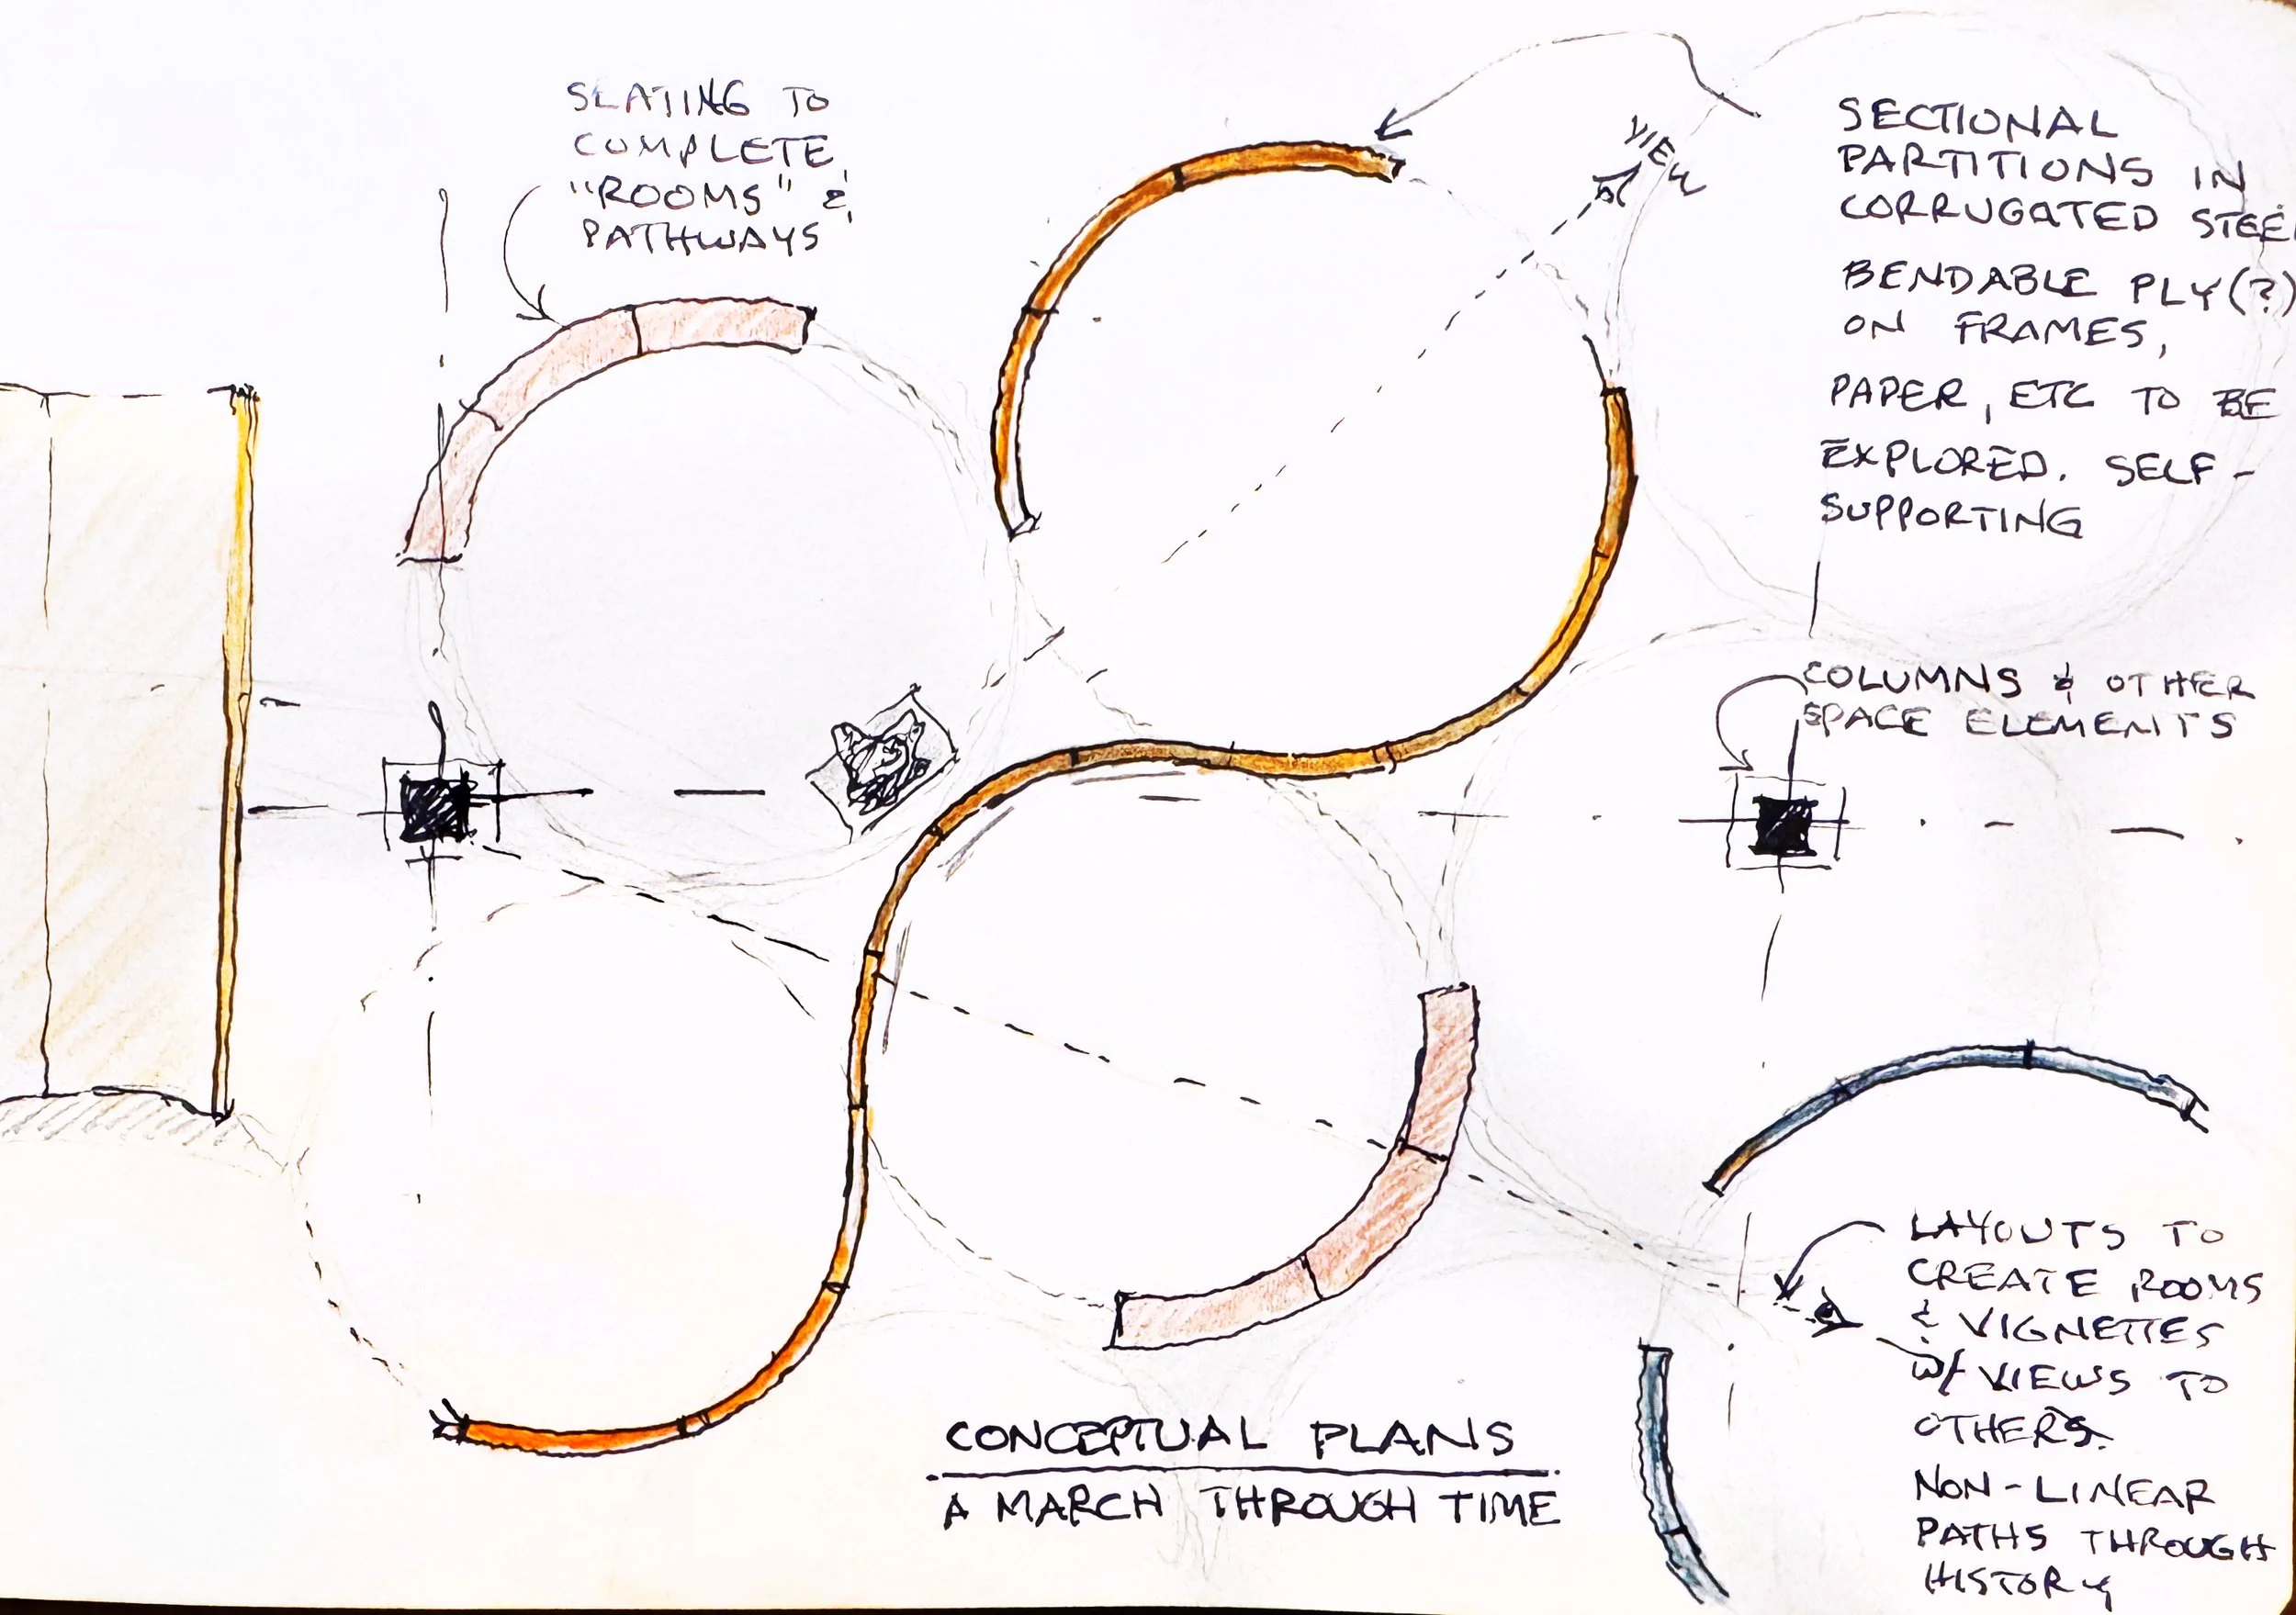 SEATING TO
COMPLETE
"ROOMS" &
PATHWAYS
VIEW
SECTIONAL
PARTITIONS IN
CORRUGATED STEEL
BENDABLE PLY(?)
ON FRAMES,
PAPER, ETC TO BE
EXPLORED. SELF-
SUPPORTING
COLUMNS & OTHER
SPACE ELEMENTS
LAYOUTS TO
CREATE ROOMS
& VIGNETTES
W/ VIEWS TO
OTHERS.
NON-LINEAR
PATHS THROUGH
HISTORY
CONCEPTUAL PLANS
A MARCH THROUGH TIME